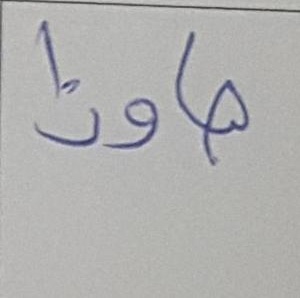 هاونا